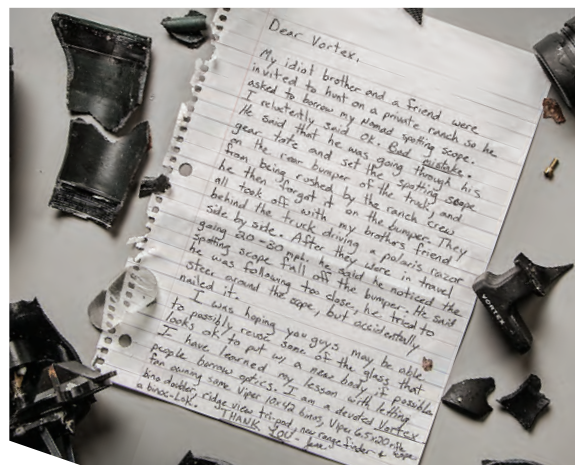 Dear Vortex,
My idiot brother and a friend were
invited to hunt on a private ranch so he
asked to borrow my Nomad spotting scope.
I reluctently said OK. Bad mistake.
He said that he was going through his
gear tote and set the spotting scope
on the rear bumper of the truck, and
from being rushed by the ranch crew
he then forgot it on the bumper. They
all took off with my brothers friend
behind the truck driving a polaris razor
side by side. After they were in travel
going 20-30 mph, he said he noticed the
spotting scope fall off the bumper. He said
he was following too close, he tried to
steer around the scope, but accidentally
nailed it.
I was hoping you guys may be able
to possibly reuse some of the glass that
looks ok to put w/ a new body if possible
I have learned my lesson with letting
people burrow optics. I am a devoted Vortex
fan owning some Viper 10x42 binos, Viper 6.5x20 rifle
bino doubler, ridge view tri-pod, new range finder &
a binoc-Lok.
THANK YOU
VORTEX